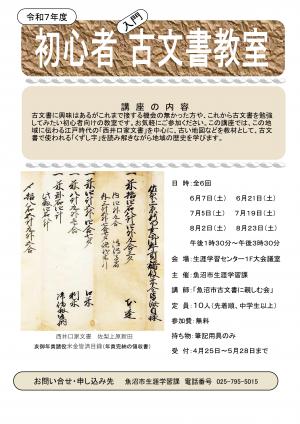 令和７年度
入門
初心者 古文書教室
講 座 の 内 容
古文書に興味はあるがこれまで接する機会の無かった方や、これから古文書を勉強
してみたい初心者向けの教室です。お気軽にご参加ください。この講座では、この地
域に伝わる江戸時代の「西井口家文書」を中心に、古い地図などを教材として、古文
書で使われる「くずし字」を読み解きながら地域の歴史を学びます。
日 時：全６回
６月７日（土） ６月２１日（土）
７月５日（土） ７月１９日（土）
８月２日（土） ８月２３日（土）
午後１時３０分～午後３時３０分
会 場：生涯学習センター１Ｆ大会議室
主 催：魚沼市生涯学習課
講 師：「魚沼市古文書に親しむ会」
定 員：１０人（先着順、中学生以上）
参加費：無料
持ち物：筆記用具のみ
受 付：４月２５日～５月２８日まで
西井口家文書 佐梨上原新田
亥御年貢諸役米金皆済目録（年貢完納の領収書）
お問い合せ・申し込み先 魚沼市生涯学習課 電話番号 025-795-5015